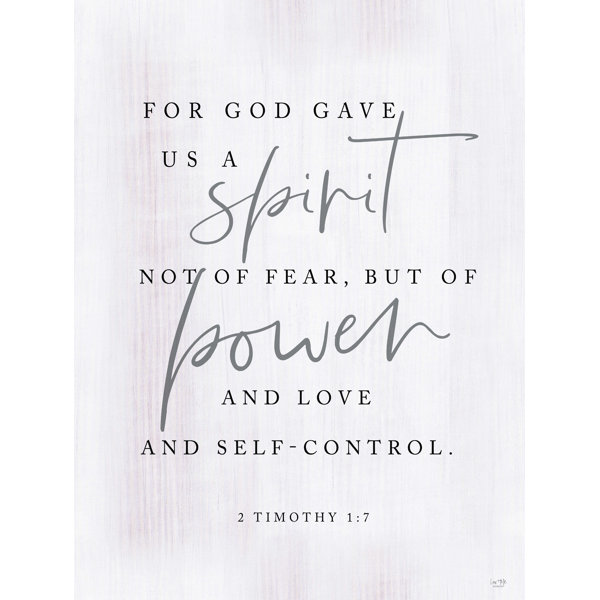 FOR GOD GAVE
US A
spirit
NOT OF FEAR, BUT OF
power
AND LOVE
AND SELF-CONTROL.
2 TIMOTHY 1:7